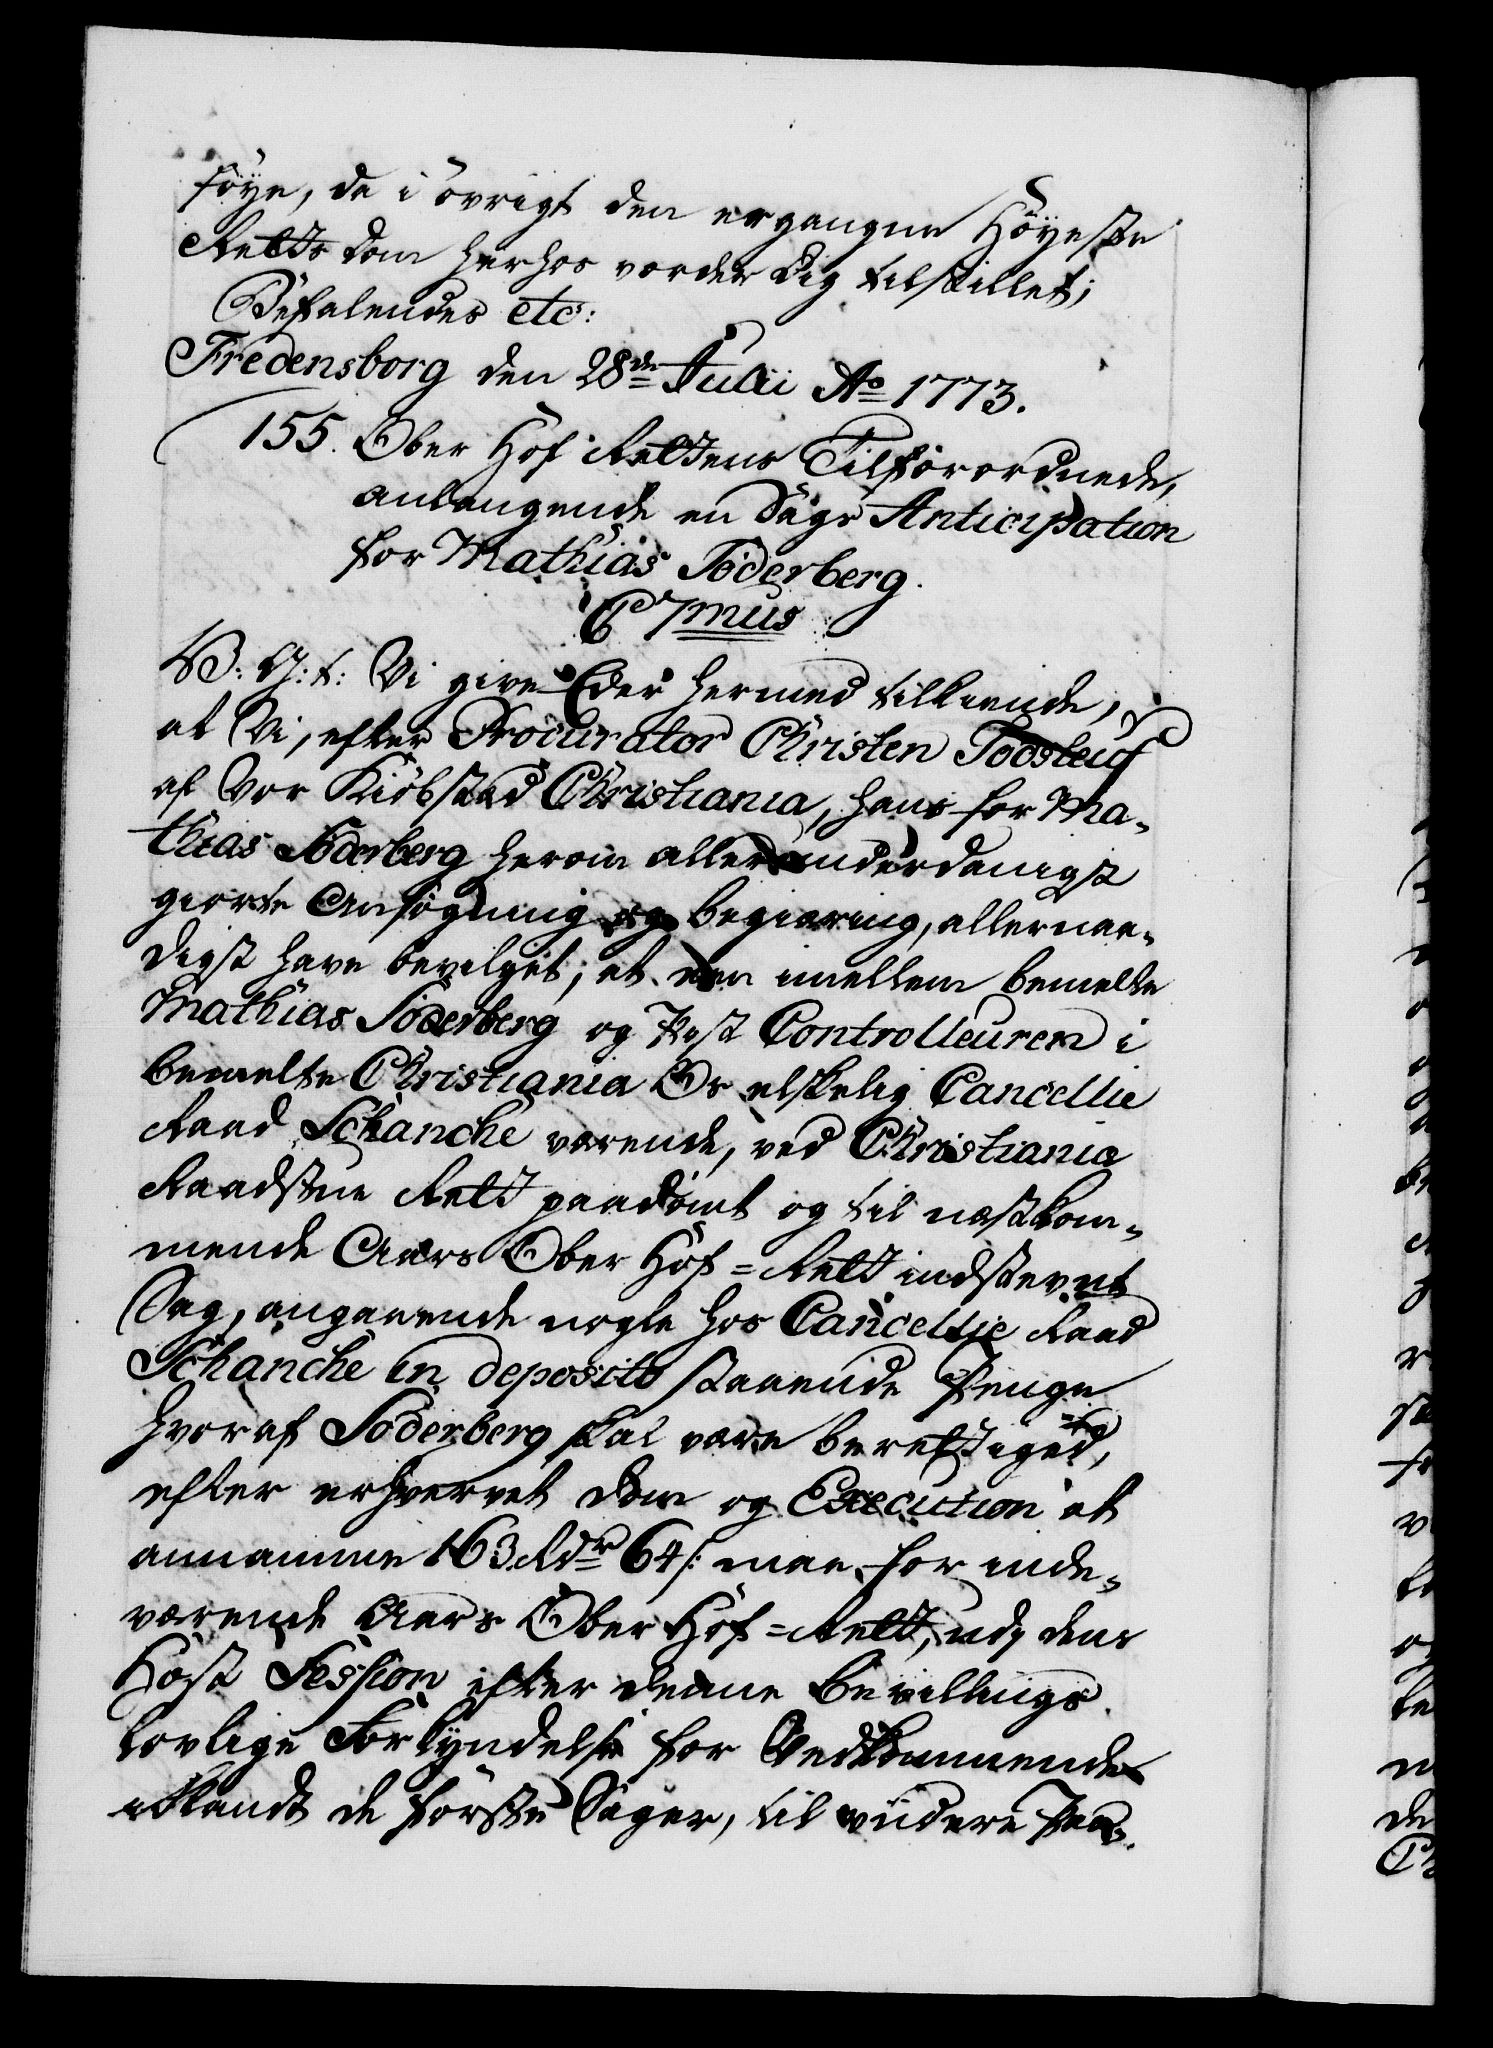 föye, da i övrigt den ergangne Höyeste
Retts Dom herhos vorder Dig tilstillet;
Befalendes etc:
Fredensborg den 28de Julii Ao 1773.
155. Ober Hof Rettens Tilforordnede,
anlangende en Sags Anticipation
for Mathias Söderberg.
C 7mus
V: G: t: Vi give Eder hermed tilkiende,
at Vi, efter Procurator Christen
af Vor Kiöbstæd Christiania, hans for Ma-
thias Söderberg herom allerunderdanigst
giorte Ansögning og begiæring, allernaa-
digst have bevilget; at den imellem bemelte
Mathias Söderberg og Post Controlleuren i
bemelte Christiania Os elskelig Cancellie
Raad Schanche værende, ved Christiania
Raadstue Rett paadömt og til næstkom-
mende Aars Ober Hof=Rett indstevnt
Sag, angaaende nogle hos Cancellie Raad
Schanche in deposito staaende Penge
hvoraf Söderberg skal være berettiged,
efter erhvervet Dom og Execution at
annamme 163 Rdr 64 s: maa for inde-
værende Aars Ober Hof=Rett, udj dens
Höst Session efter denne Bevillings
lovlige Forkyndelse for Vedkommende
iblandt de förste Sager, til viidere Paa-